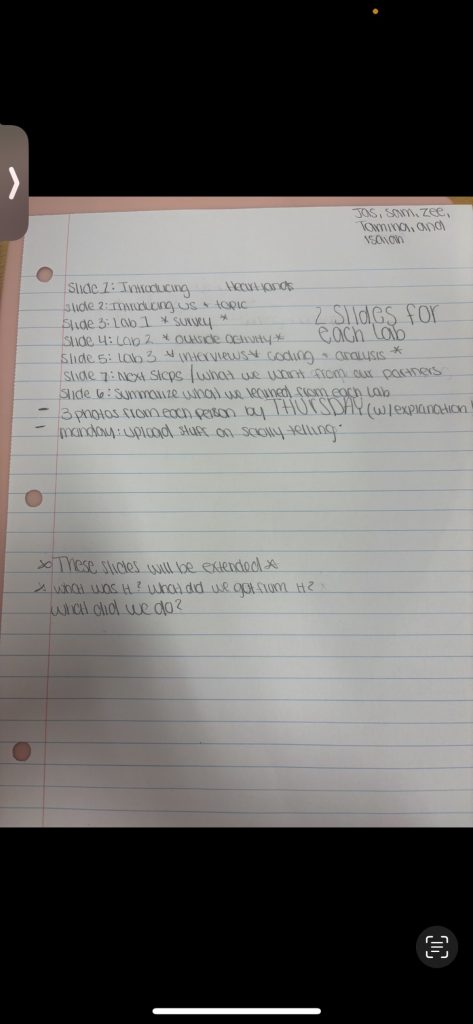 Jas, Sam, Zee,
Tamina, and
Isaiah
Slide 1: Introducing Heartlands
slide 2: Introducing us + topic
Slide 3: Lab 1 * survey *
2 slides for
Slide 4: Lab 2 * outside activity *
each lab
Slide 5: Lab 3 * interviews * coding + analysis *
Slide 7: Next steps / what we want from our partners
Slide 6: Summarize what we learned from each lab
- 3 photos from each person by THURSDAY (w/ explanation
- monday: upload stuff on telling.
* These slides will be extended *
* what was it? what did we get from it?
what did we do?